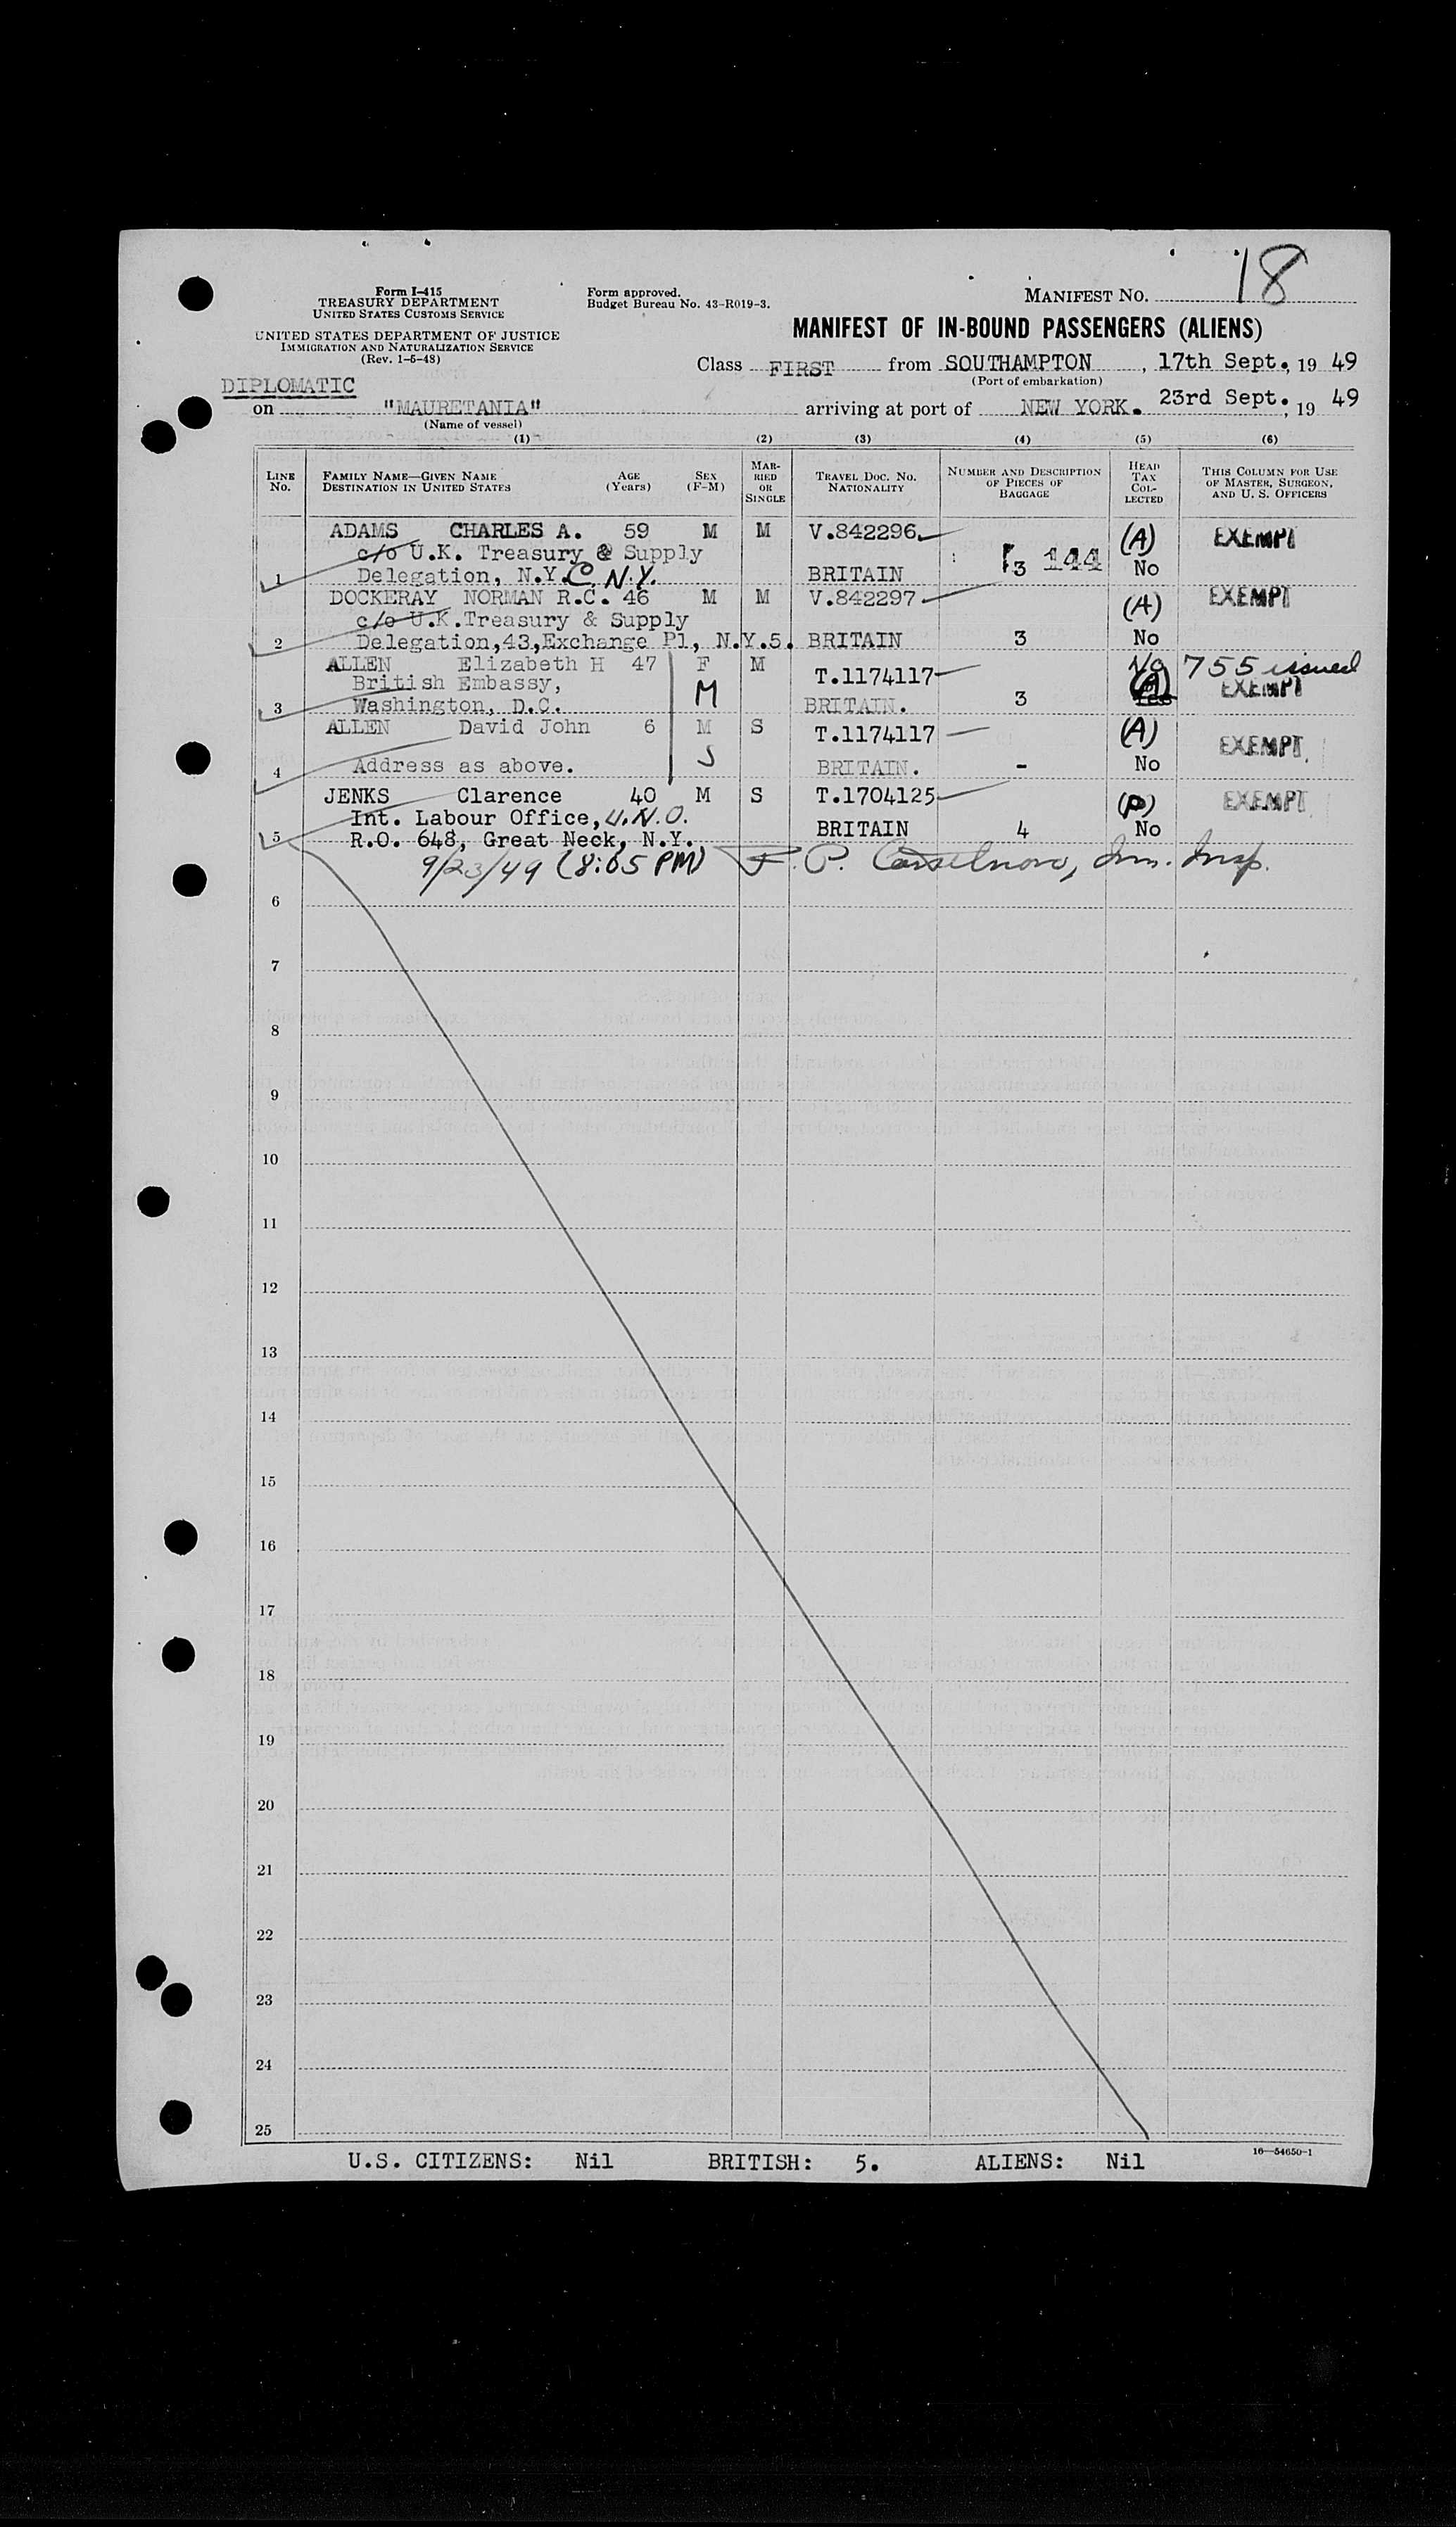 18
Form I-415
TREASURY DEPARTMENT
UNITED STATES CUSTOMS SERVICE
UNITED STATES DEPARTMENT OF JUSTICE
IMMIGRATION AND NATURALIZATION SERVICE
(Rev. 1-5-48)
Form approved.
Budget Bureau No. 43-R019-3.
MANIFEST NO.
MANIFEST OF IN-BOUND PASSENGERS (ALIENS)
Class FIRST from SOUTHAMPTON, 17th Sept., 19 49
(Port of embarkation)
DIPLOMATIC
on "MAURETANIA" arriving at port of NEW YORK. 23rd Sept., 19 49
(Name of vessel)
(1) (2) (3) (4) (5) (6)
LINE No. FAMILY NAME—GIVEN NAME DESTINATION IN UNITED STATES AGE (Years) SEX (F-M) MARRIED OR SINGLE TRAVEL DOC. NO. NATIONALITY NUMBER AND DESCRIPTION OF PIECES OF BAGGAGE HEAD TAX COLLECTED THIS COLUMN FOR USE OF MASTER, SURGEON, AND U. S. OFFICERS
ADAMS CHARLES A. 59 M M V.842296 (A) EXEMPT
c/o U.K. Treasury & Supply 3 144
1 Delegation, N.Y.C. N.Y. BRITAIN No
DOCKERAY NORMAN R.C. 46 M M V.842297 (A) EXEMPT
c/o U.K.Treasury & Supply
2 Delegation,43,Exchange Pl, N.Y.5. BRITAIN 3 No
ALLEN Elizabeth H 47 F M T.1174117 No 755 issued
British Embassy, M (A) EXEMPT
3 Washington, D.C. BRITAIN. 3
ALLEN David John 6 M S T.1174117 (A) EXEMPT
4 Address as above. S BRITAIN. - No
JENKS Clarence 40 M S T.1704125 (P) EXEMPT
Int. Labour Office, U.N.O. BRITAIN 4 No
5 R.O. 648, Great Neck, N.Y.
9/23/49 (8:05 PM) F. P. Imm. Insp.
6
7
8
9
10
11
12
13
14
15
16
17
18
19
20
21
22
23
24
25
U.S. CITIZENS: Nil BRITISH: 5. ALIENS: Nil
16—54650-1